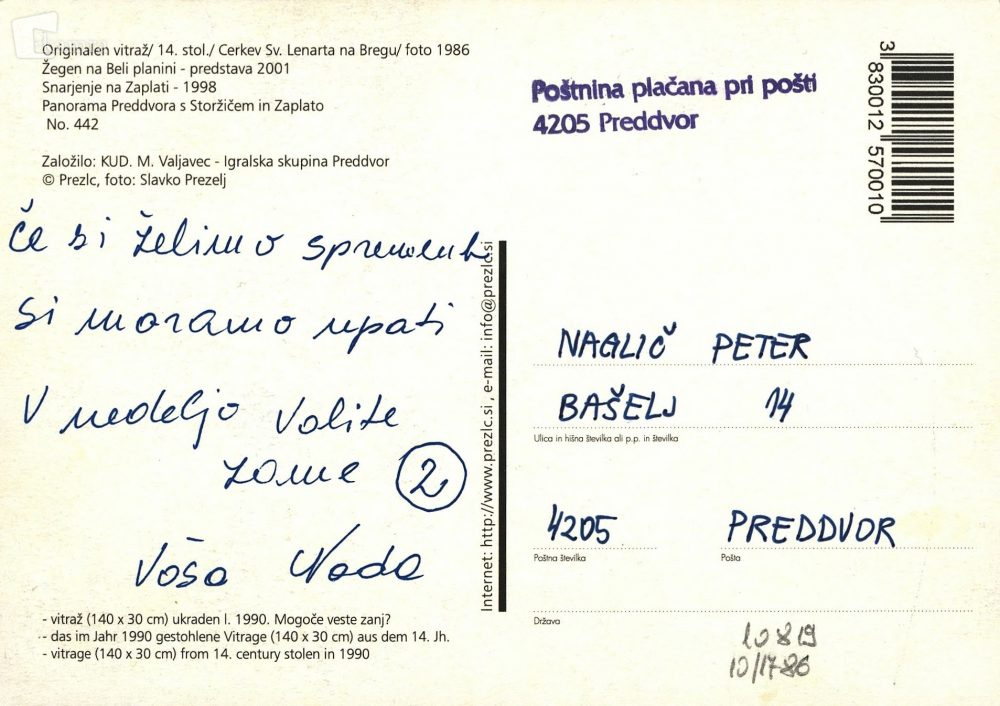 Originalen vitraž/ 14. stol./ Cerkev Sv. Lenarta na Bregu/ foto 1986
Žegen na Beli planini - predstava 2001
Snarjenje na Zaplati - 1998
Panorama Preddvora s Storžičem in Zaplato
No. 442
Založilo: KUD. M. Valjavec - Igralska skupina Preddvor
© Prezlc, foto: Slavko Prezelj
Če si želimo sprememb
si moramo upati
V nedeljo Volite
zame 2
Vaša Nada
- vitraž (140 x 30 cm) ukraden l. 1990. Mogoče veste zanj?
- das im Jahr 1990 gestohlene Vitrage (140 x 30 cm) aus dem 14. Jh.
- vitrage (140 x 30 cm) from 14. century stolen in 1990
Internet: http://www.prezlc.si , e-mail: info@prezlc.si
Poštnina plačana pri pošti
4205 Preddvor
3 830012 570010
NAGLIČ PETER
BAŠELJ 14
Ulica in hišna številka ali p.p. in številka
4205 PREDDVOR
Poštna številka Pošta
Država
10819
10/17-86